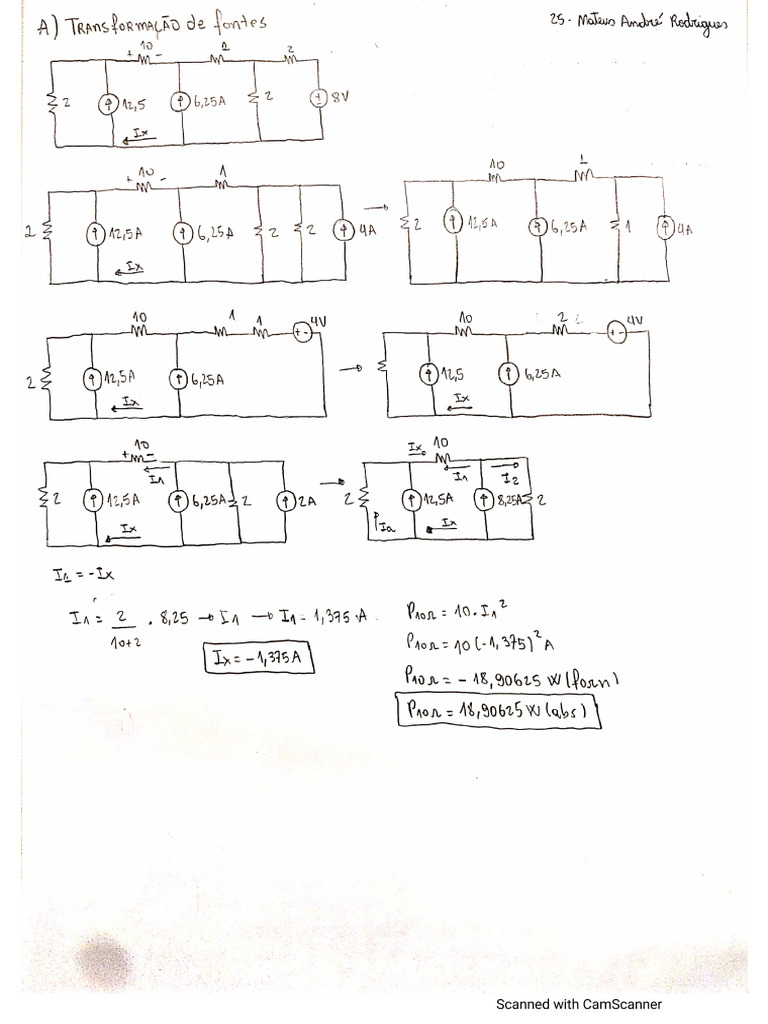 A) TRANSFORMAÇÃO de fontes
25 - Mateus André Rodrigues
+ 10 - 2 2
2 12,5 6,25A 2 8V
Ix
+ 10 - 1
2 12,5A 6,25A 2 2 4A
Ix
10 1
2 12,5A 6,25A 1 4A
10 1 1 + - 4V
2 12,5A 6,25A
Ix
10 2 + - 4V
12,5 6,25A
Ix
+ 10 -
I1
2 12,5A 6,25A 2 2A
Ix
Ix 10
I1 I2
2 12,5A 8,25A 2
Ia Ix
I1 = -Ix
I1 = 2/10+2 . 8,25 → I1 → I1 = 1,375 A
Ix = -1,375A
P10Ω = 10 . I1²
P10Ω = 10 (-1,375)² A
P10Ω = - 18,90625 W (forn)
P10Ω = 18,90625 W (abs)
Scanned with CamScanner